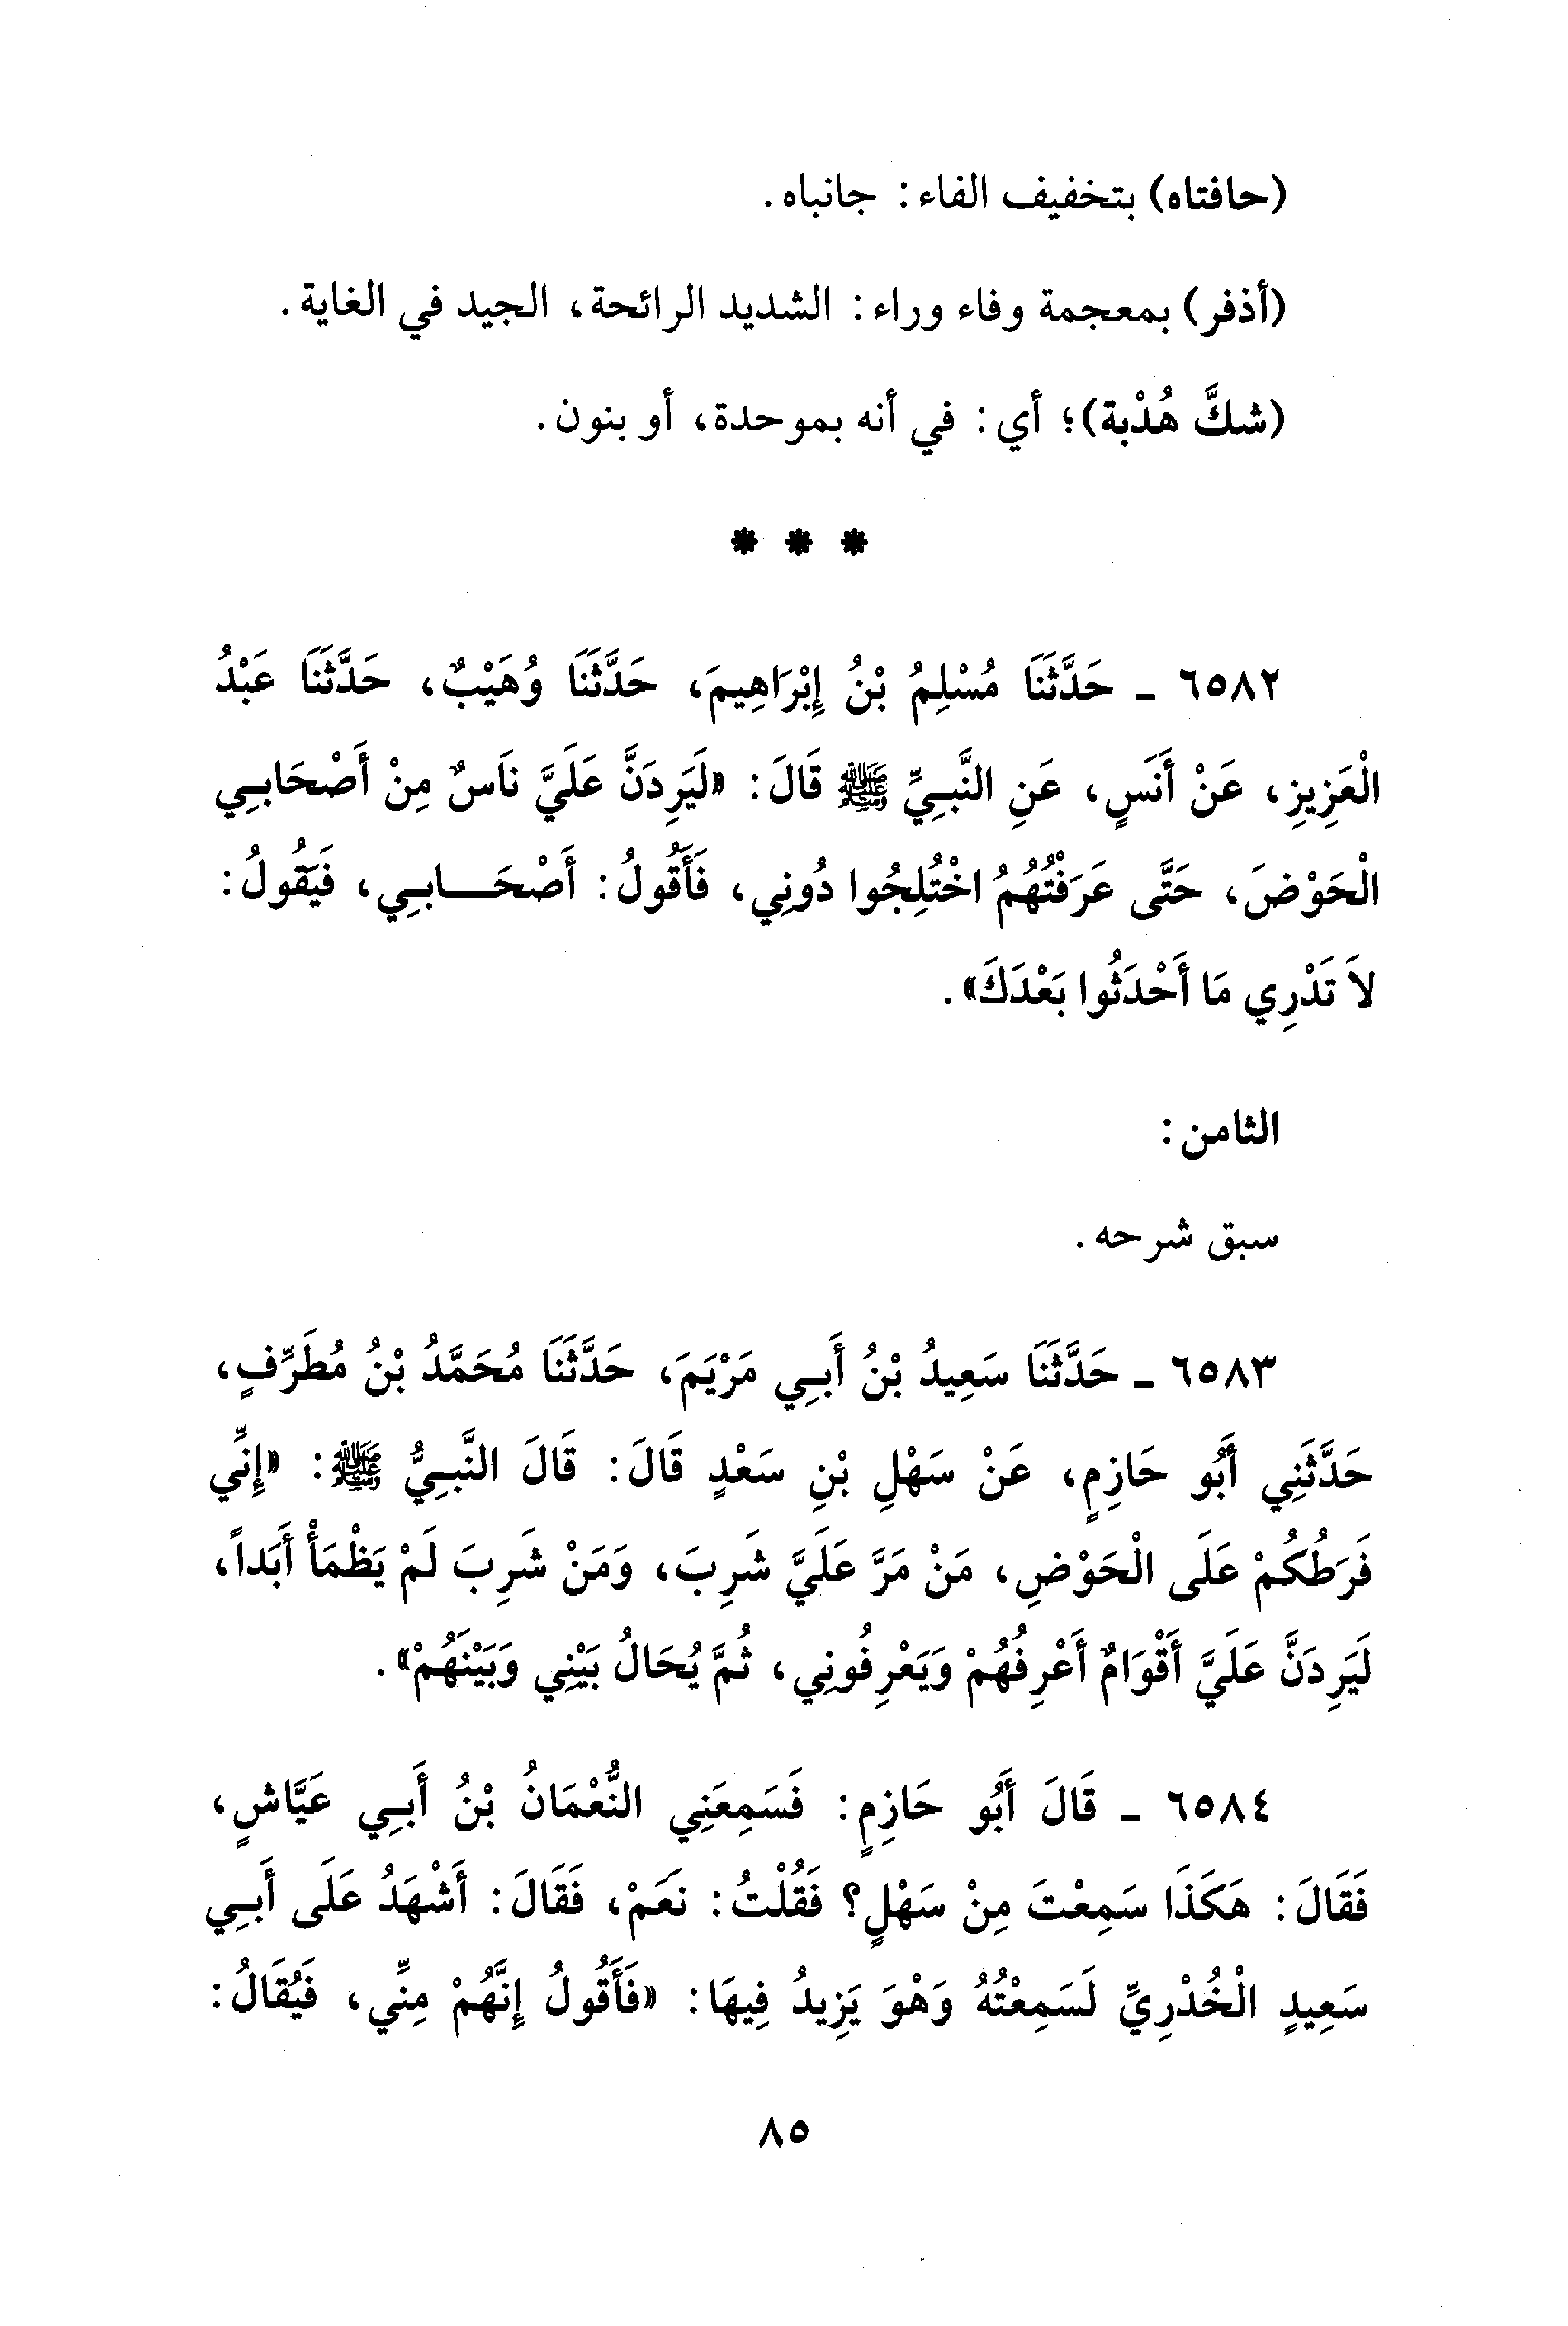 (حافتاه) بتخفيف الفاء: جانباه.
(أذفر) بمعجمة وفاء وراء: الشديد الرائحة، الجيد في الغاية.
(شكَّ هُدْبة)؛ أي: في أنه بموحدة، أو بنون.
* * *
٦٥٨٢ ـ حَدَّثَنَا مُسْلِمُ بْنُ إِبْرَاهِيمَ، حَدَّثَنَا وُهَيْبٌ، حَدَّثَنَا عَبْدُ
الْعَزِيزِ، عَنْ أَنَسٍ، عَنِ النَّبِيِّ ﷺ قَالَ: «لَيَرِدَنَّ عَلَيَّ نَاسٌ مِنْ أَصْحَابِي
الْحَوْضَ، حَتَّى عَرَفْتُهُمُ اخْتُلِجُوا دُونِي، فَأَقُولُ: أَصْحَابِي، فَيَقُولُ:
لاَ تَدْرِي مَا أَحْدَثُوا بَعْدَكَ».
الثامن:
سبق شرحه.
٦٥٨٣ ـ حَدَّثَنَا سَعِيدُ بْنُ أَبِي مَرْيَمَ، حَدَّثَنَا مُحَمَّدُ بْنُ مُطَرِّفٍ،
حَدَّثَنِي أَبُو حَازِمٍ، عَنْ سَهْلِ بْنِ سَعْدٍ قَالَ: قَالَ النَّبِيُّ ﷺ: «إِنِّي
فَرَطُكُمْ عَلَى الْحَوْضِ، مَنْ مَرَّ عَلَيَّ شَرِبَ، وَمَنْ شَرِبَ لَمْ يَظْمَأْ أَبَداً،
لَيَرِدَنَّ عَلَيَّ أَقْوَامٌ أَعْرِفُهُمْ وَيَعْرِفُونِي، ثُمَّ يُحَالُ بَيْنِي وَبَيْنَهُمْ».
٦٥٨٤ ـ قَالَ أَبُو حَازِمٍ: فَسَمِعَنِي النُّعْمَانُ بْنُ أَبِي عَيَّاشٍ،
فَقَالَ: هَكَذَا سَمِعْتَ مِنْ سَهْلٍ؟ فَقُلْتُ: نَعَمْ، فَقَالَ: أَشْهَدُ عَلَى أَبِي
سَعِيدٍ الْخُدْرِيِّ لَسَمِعْتُهُ وَهْوَ يَزِيدُ فِيهَا: «فَأَقُولُ إِنَّهُمْ مِنِّي، فَيُقَالُ:
٨٥